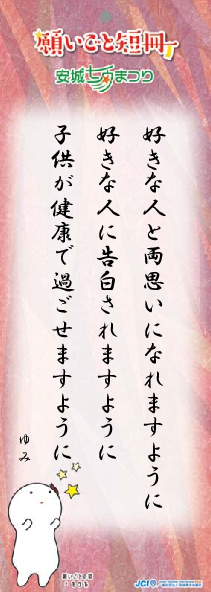 願いごと短冊
安城七夕まつり
好きな人と両思いになれますように
好きな人に告白されますように
子供が健康で過ごせますように
ゆみ
JCI